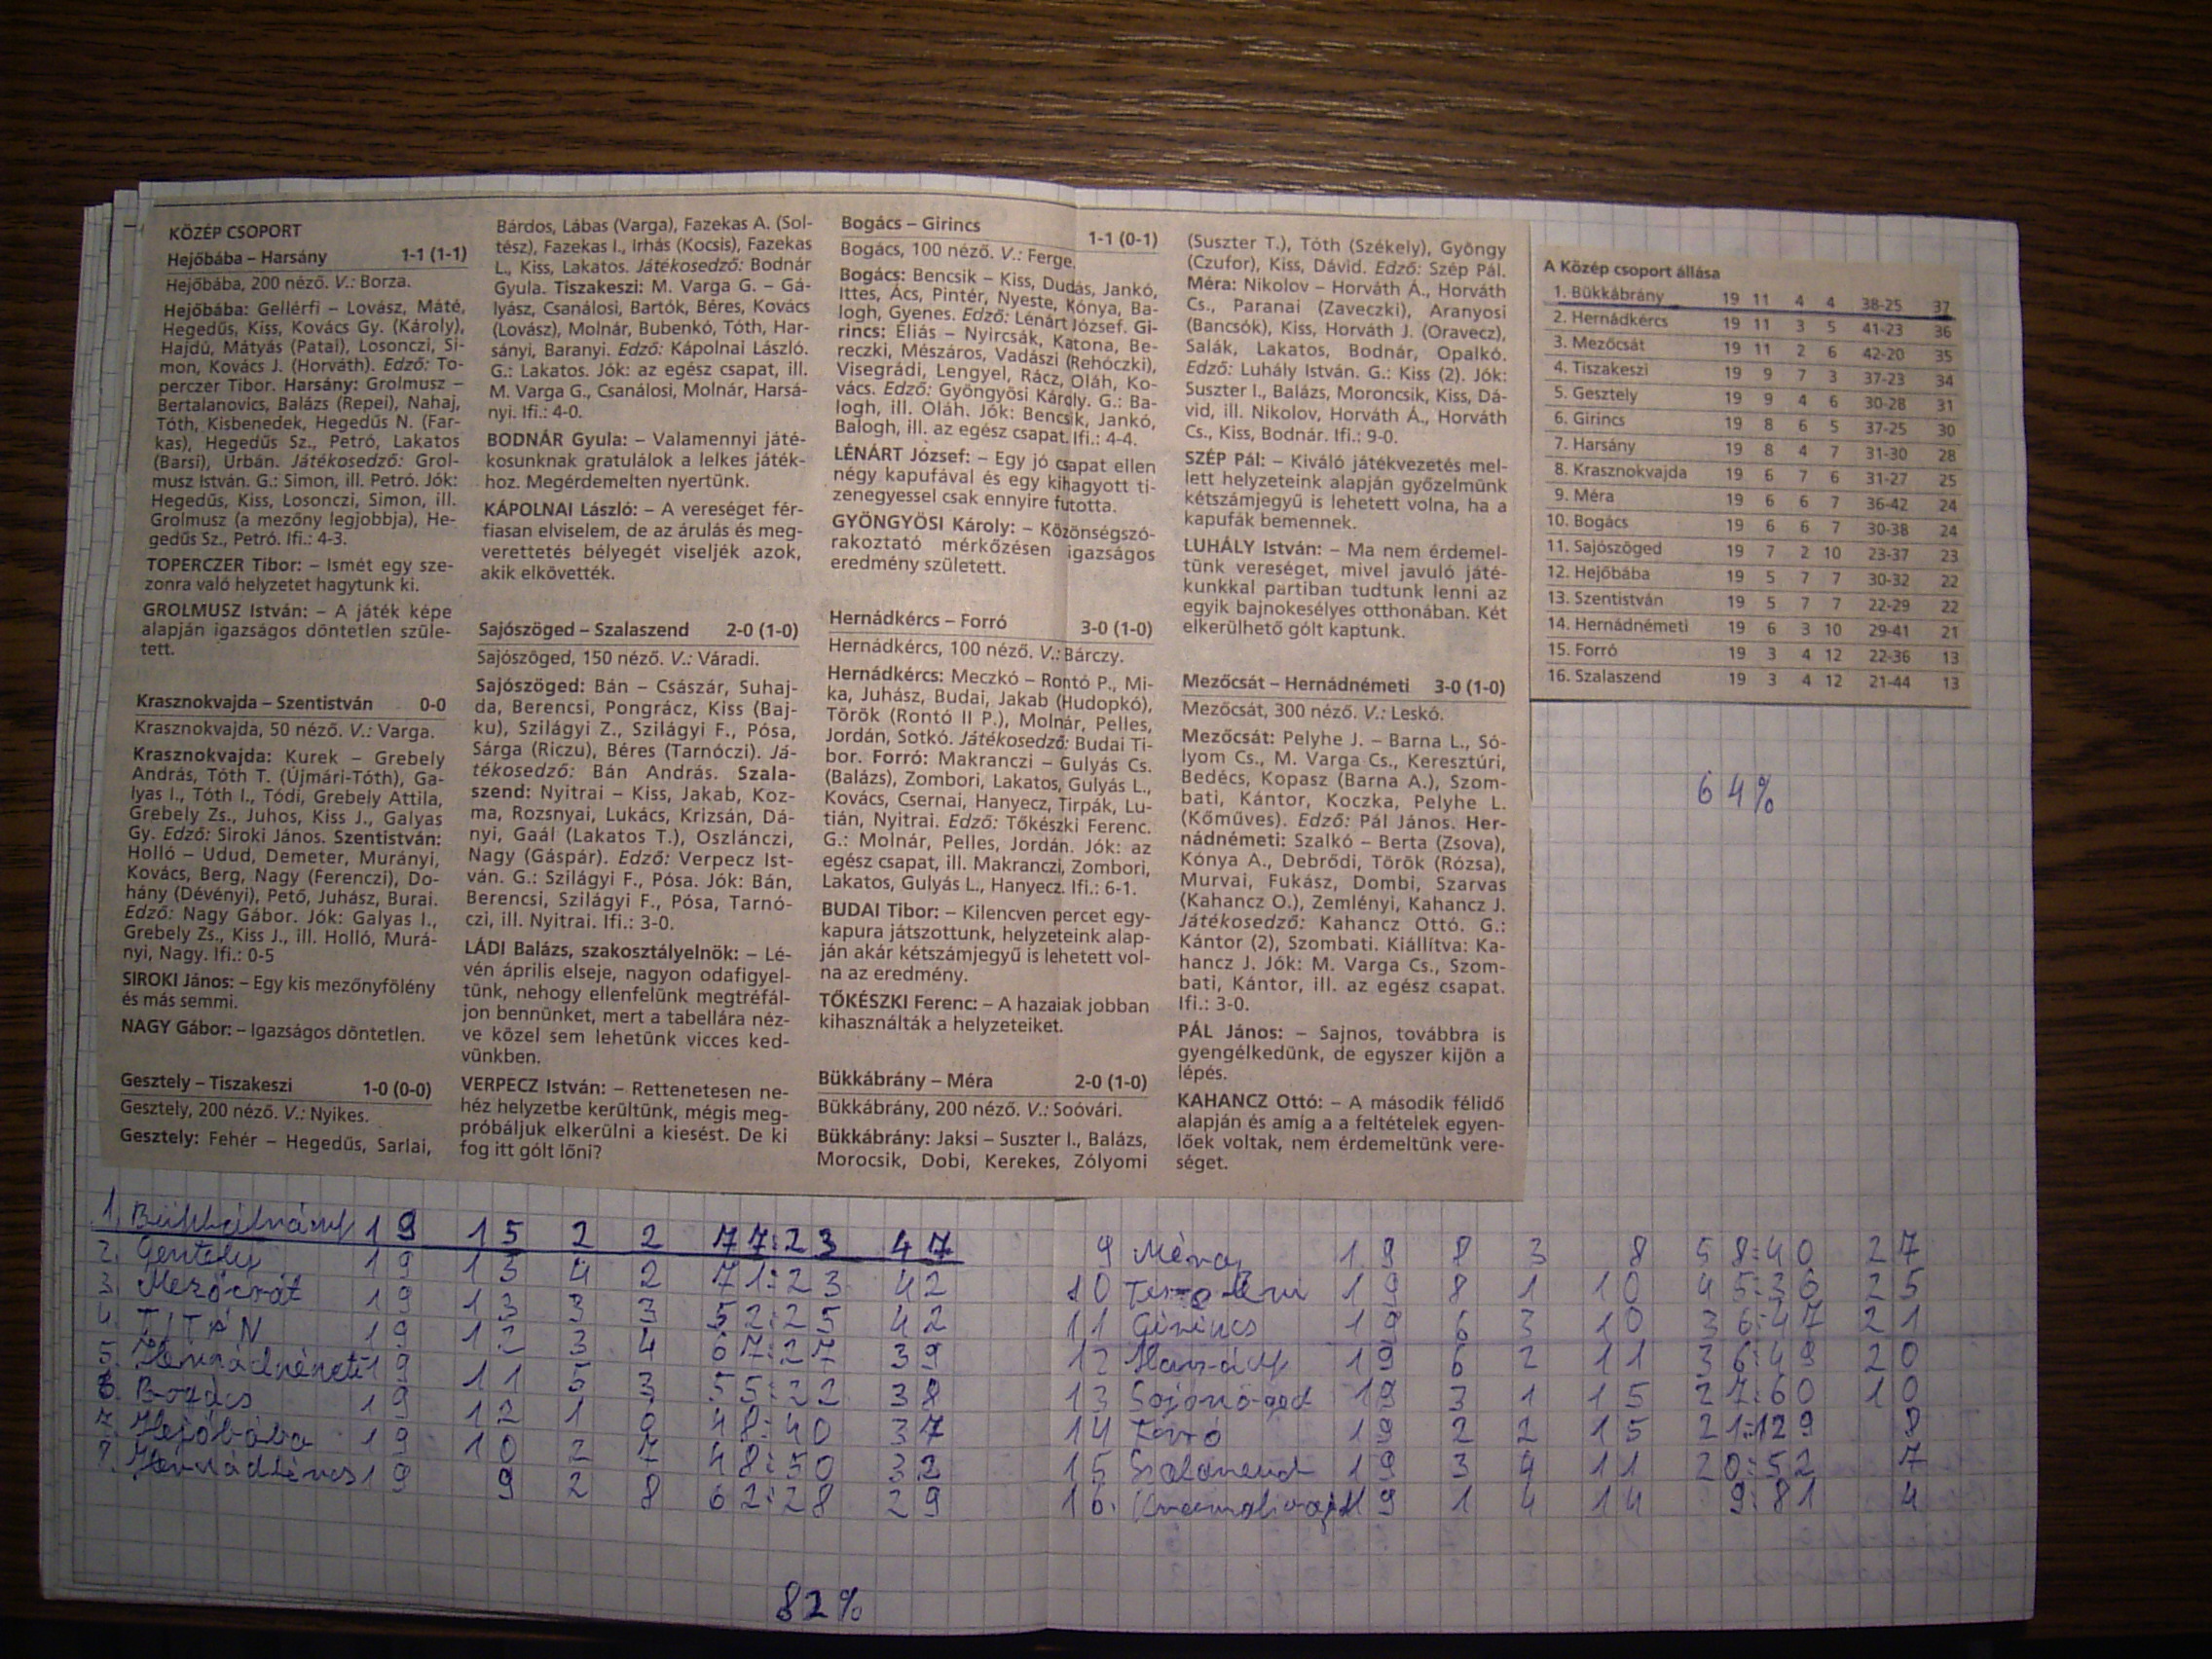 KÖZÉP CSOPORT
Hejőbába – Harsány 1-1 (1-1)
Hejőbába, 200 néző. V.: Borza.
Hejőbába: Gellérfi – Lovász, Máté,
Hegedűs, Kiss, Kovács Gy. (Károly),
Hajdú, Mátyás (Patai), Losonczi, Si-
mon, Kovács J. (Horváth). Edző: To-
perczer Tibor. Harsány: Grolmusz –
Bertalanovics, Balázs (Repei), Nahaj,
Tóth, Kisbenedek, Hegedűs N. (Far-
kas), Hegedűs Sz., Petró, Lakatos
(Barsi), Urbán. Játékosedző: Grol-
musz István. G.: Simon, ill. Petró. Jók:
Hegedűs, Kiss, Losonczi, Simon, ill.
Grolmusz (a mezőny legjobbja), He-
gedűs Sz., Petró. Ifi.: 4-3.
TOPERCZER Tibor: – Ismét egy sze-
zonra való helyzetet hagytunk ki.
GROLMUSZ István: – A játék képe
alapján igazságos döntetlen szüle-
tett.
Krasznokvajda – Szentistván 0-0
Krasznokvajda, 50 néző. V.: Varga.
Krasznokvajda: Kurek – Grebely
András, Tóth T. (Újmári-Tóth), Ga-
lyas I., Tóth I., Tódi, Grebely Attila,
Grebely Zs., Juhos, Kiss J., Galyas
Gy. Edző: Siroki János. Szentistván:
Holló – Udud, Demeter, Murányi,
Kovács, Berg, Nagy (Ferenczi), Do-
hány (Dévényi), Pető, Juhász, Burai.
Edző: Nagy Gábor. Jók: Galyas I.,
Grebely Zs., Kiss J., ill. Holló, Murá-
nyi, Nagy. Ifi.: 0-5
SIROKI János: – Egy kis mezőnyfölény
és más semmi.
NAGY Gábor: – Igazságos döntetlen.
Gesztely – Tiszakeszi 1-0 (0-0)
Gesztely, 200 néző. V.: Nyikes.
Gesztely: Fehér – Hegedűs, Sarlai,
Bárdos, Lábas (Varga), Fazekas A. (Sol-
tész), Fazekas I., Irhás (Kocsis), Fazekas
L., Kiss, Lakatos. Játékosedző: Bodnár
Gyula. Tiszakeszi: M. Varga G. – Gá-
lyász, Csanálosi, Bartók, Béres, Kovács
(Lovász), Molnár, Bubenkó, Tóth, Har-
sányi, Baranyi. Edző: Kápolnai László.
G.: Lakatos. Jók: az egész csapat, ill.
M. Varga G., Csanálosi, Molnár, Harsá-
nyi. Ifi.: 4-0.
BODNÁR Gyula: – Valamennyi játé-
kosunknak gratulálok a lelkes játék-
hoz. Megérdemelten nyertünk.
KÁPOLNAI László: – A vereséget fér-
fiasan elviselem, de az árulás és meg-
verettetés bélyegét viseljék azok,
akik elkövették.
Sajószöged – Szalaszend 2-0 (1-0)
Sajószöged, 150 néző. V.: Váradi.
Sajószöged: Bán – Császár, Suhaj-
da, Berencsi, Pongrácz, Kiss (Baj-
ku), Szilágyi Z., Szilágyi F., Pósa,
Sárga (Riczu), Béres (Tarnóczi). Já-
tékosedző: Bán András. Szala-
szend: Nyitrai – Kiss, Jakab, Koz-
ma, Rozsnyai, Lukács, Krizsán, Dá-
nyi, Gaál (Lakatos T.), Oszlánczi,
Nagy (Gáspár). Edző: Verpecz Ist-
ván. G.: Szilágyi F., Pósa. Jók: Bán,
Berencsi, Szilágyi F., Pósa, Tarnó-
czi, ill. Nyitrai. Ifi.: 3-0.
LÁDI Balázs, szakosztályelnök: – Lé-
vén április elseje, nagyon odafigyel-
tünk, nehogy ellenfelünk megtréfál-
jon bennünket, mert a tabellára néz-
ve közel sem lehetünk vicces ked-
vünkben.
VERPECZ István: – Rettenetesen ne-
héz helyzetbe kerültünk, mégis meg-
próbáljuk elkerülni a kiesést. De ki
fog itt gólt lőni?
Bogács – Girincs 1-1 (0-1)
Bogács, 100 néző. V.: Ferge.
Bogács: Bencsik – Kiss, Dudás, Jankó,
Ittes, Ács, Pintér, Nyeste, Kónya, Ba-
logh, Gyenes. Edző: Lénárt József. Gi-
rincs: Éliás – Nyircsák, Katona, Be-
reczki, Mészáros, Vadászi (Rehóczki),
Visegrádi, Lengyel, Rácz, Oláh, Ko-
vács. Edző: Gyöngyösi Károly. G.: Ba-
logh, ill. Oláh. Jók: Bencsik, Jankó,
Balogh, ill. az egész csapat. Ifi.: 4-4.
LÉNÁRT József: – Egy jó csapat ellen
négy kapufával és egy kihagyott ti-
zenegyessel csak ennyire futotta.
GYÖNGYÖSI Károly: – Közönségszó-
rakoztató mérkőzésen igazságos
eredmény született.
Hernádkércs – Forró 3-0 (1-0)
Hernádkércs, 100 néző. V.: Bárczy.
Hernádkércs: Meczkó – Rontó P., Mi-
ka, Juhász, Budai, Jakab (Hudopkó),
Török (Rontó II P.), Molnár, Pelles,
Jordán, Sotkó. Játékosedző: Budai Ti-
bor. Forró: Makranczi – Gulyás Cs.
(Balázs), Zombori, Lakatos, Gulyás L.,
Kovács, Csernai, Hanyecz, Tirpák, Lu-
tián, Nyitrai. Edző: Tőkészki Ferenc.
G.: Molnár, Pelles, Jordán. Jók: az
egész csapat, ill. Makranczi, Zombori,
Lakatos, Gulyás L., Hanyecz. Ifi.: 6-1.
BUDAI Tibor: – Kilencven percet egy-
kapura játszottunk, helyzeteink alap-
ján akár kétszámjegyű is lehetett vol-
na az eredmény.
TŐKÉSZKI Ferenc: – A hazaiak jobban
kihasználták a helyzeteiket.
Bükkábrány – Méra 2-0 (1-0)
Bükkábrány, 200 néző. V.: Soóvári.
Bükkábrány: Jaksi – Suszter I., Balázs,
Morocsik, Dobi, Kerekes, Zólyomi
(Suszter T.), Tóth (Székely), Gyöngy
(Czufor), Kiss, Dávid. Edző: Szép Pál.
Méra: Nikolov – Horváth Á., Horváth
Cs., Paranai (Zaveczki), Aranyosi
(Bancsók), Kiss, Horváth J. (Oravecz),
Salák, Lakatos, Bodnár, Opalkó.
Edző: Luhály István. G.: Kiss (2). Jók:
Suszter I., Balázs, Moroncsik, Kiss, Dá-
vid, ill. Nikolov, Horváth Á., Horváth
Cs., Kiss, Bodnár. Ifi.: 9-0.
SZÉP Pál: – Kiváló játékvezetés mel-
lett helyzeteink alapján győzelmünk
kétszámjegyű is lehetett volna, ha a
kapufák bemennek.
LUHÁLY István: – Ma nem érdemel-
tünk vereséget, mivel javuló játé-
kunkkal partiban tudtunk lenni az
egyik bajnokesélyes otthonában. Két
elkerülhető gólt kaptunk.
Mezőcsát – Hernádnémeti 3-0 (1-0)
Mezőcsát, 300 néző. V.: Leskó.
Mezőcsát: Pelyhe J. – Barna L., Só-
lyom Cs., M. Varga Cs., Keresztúri,
Bedécs, Kopasz (Barna A.), Szom-
bati, Kántor, Koczka, Pelyhe L.
(Kőműves). Edző: Pál János. Her-
nádnémeti: Szalkó – Berta (Zsova),
Kónya A., Debrődi, Török (Rózsa),
Murvai, Fukász, Dombi, Szarvas
(Kahancz O.), Zemlényi, Kahancz J.
Játékosedző: Kahancz Ottó. G.:
Kántor (2), Szombati. Kiállítva: Ka-
hancz J. Jók: M. Varga Cs., Szom-
bati, Kántor, ill. az egész csapat.
Ifi.: 3-0.
PÁL János: – Sajnos, továbbra is
gyengélkedünk, de egyszer kijön a
lépés.
KAHANCZ Ottó: – A második félidő
alapján és amíg a a feltételek egyen-
lőek voltak, nem érdemeltünk vere-
séget.
A Közép csoport állása
1. Bükkábrány 19 11 4 4 38-25 37
2. Hernádkércs 19 11 3 5 41-23 36
3. Mezőcsát 19 11 2 6 42-20 35
4. Tiszakeszi 19 9 7 3 37-23 34
5. Gesztely 19 9 4 6 30-28 31
6. Girincs 19 8 6 5 37-25 30
7. Harsány 19 8 4 7 31-30 28
8. Krasznokvajda 19 6 7 6 31-27 25
9. Méra 19 6 6 7 36-42 24
10. Bogács 19 6 6 7 30-38 24
11. Sajószöged 19 7 2 10 23-37 23
12. Hejőbába 19 5 7 7 30-32 22
13. Szentistván 19 5 7 7 22-29 22
14. Hernádnémeti 19 6 3 10 29-41 21
15. Forró 19 3 4 12 22-36 13
16. Szalaszend 19 3 4 12 21-44 13
64%
1. Bükkábrány 19 15 2 2 77:23 47
2. Gesztely 19 13 4 2 71:23 42
3. Mezőcsát 19 13 3 3 52:25 42
4. TITÁN 19 12 3 4 67:27 39
5. Hernádnémeti 19 11 5 3 55:22 38
6. Bogács 19 12 1 48:40 37
7. Hejőbába 19 10 2 7 48:50 32
8. Hernádkércs 19 9 2 8 62:28 29
9 Méra 19 8 3 8 58:40 27
10 19 8 1 10 45:36 25
11 Girincs 19 6 3 10 36:47 21
12 Harsány 19 6 2 11 36:49 20
13 Sajószöged 19 3 1 15 27:60 10
14 Forró 19 2 2 15 21:129 8
15 Szalaszend 19 3 4 11 20:52 7
16. Krasznokvajda 19 1 4 14 9:81 4
82%